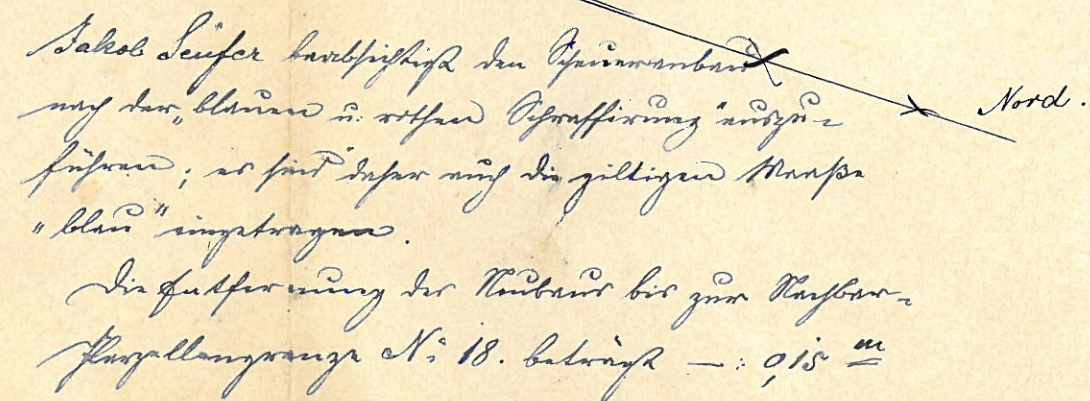 Jakob Seufer beabsichtigt den Scheueranbau
nach der „blauen u. rothen Schraffirung“ auszu-
führen; es sind daher auch die giltigen Maaße
"blau" eingetragen.
Die Entfernung des Neubaus bis zur Nachbar-
Parzellengrenze No 18. beträgt —: 0,15 m
Nord.